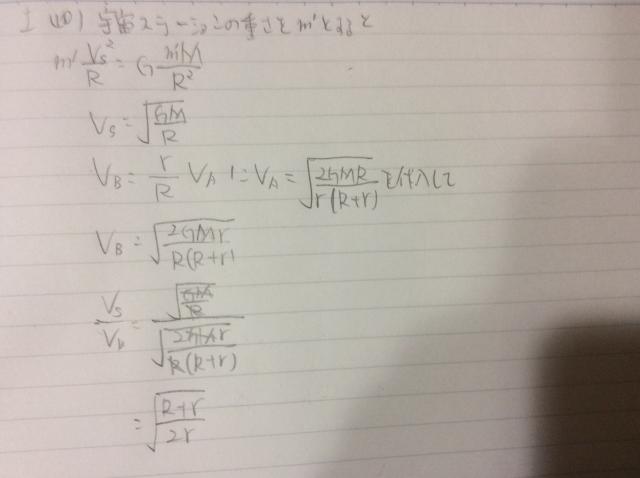 I (10) 宇宙ステーションの重さをm'とすると
m' Vs²/R = G m'M/R²
Vs = √(GM/R)
VB = r/R VA に VA = √(2GMR/r(R+r)) を代入して
VB = √(2GMr/R(R+r))
Vs/VB = √(GM/R) / √(2GMr/R(R+r))
= √(R+r/2r)